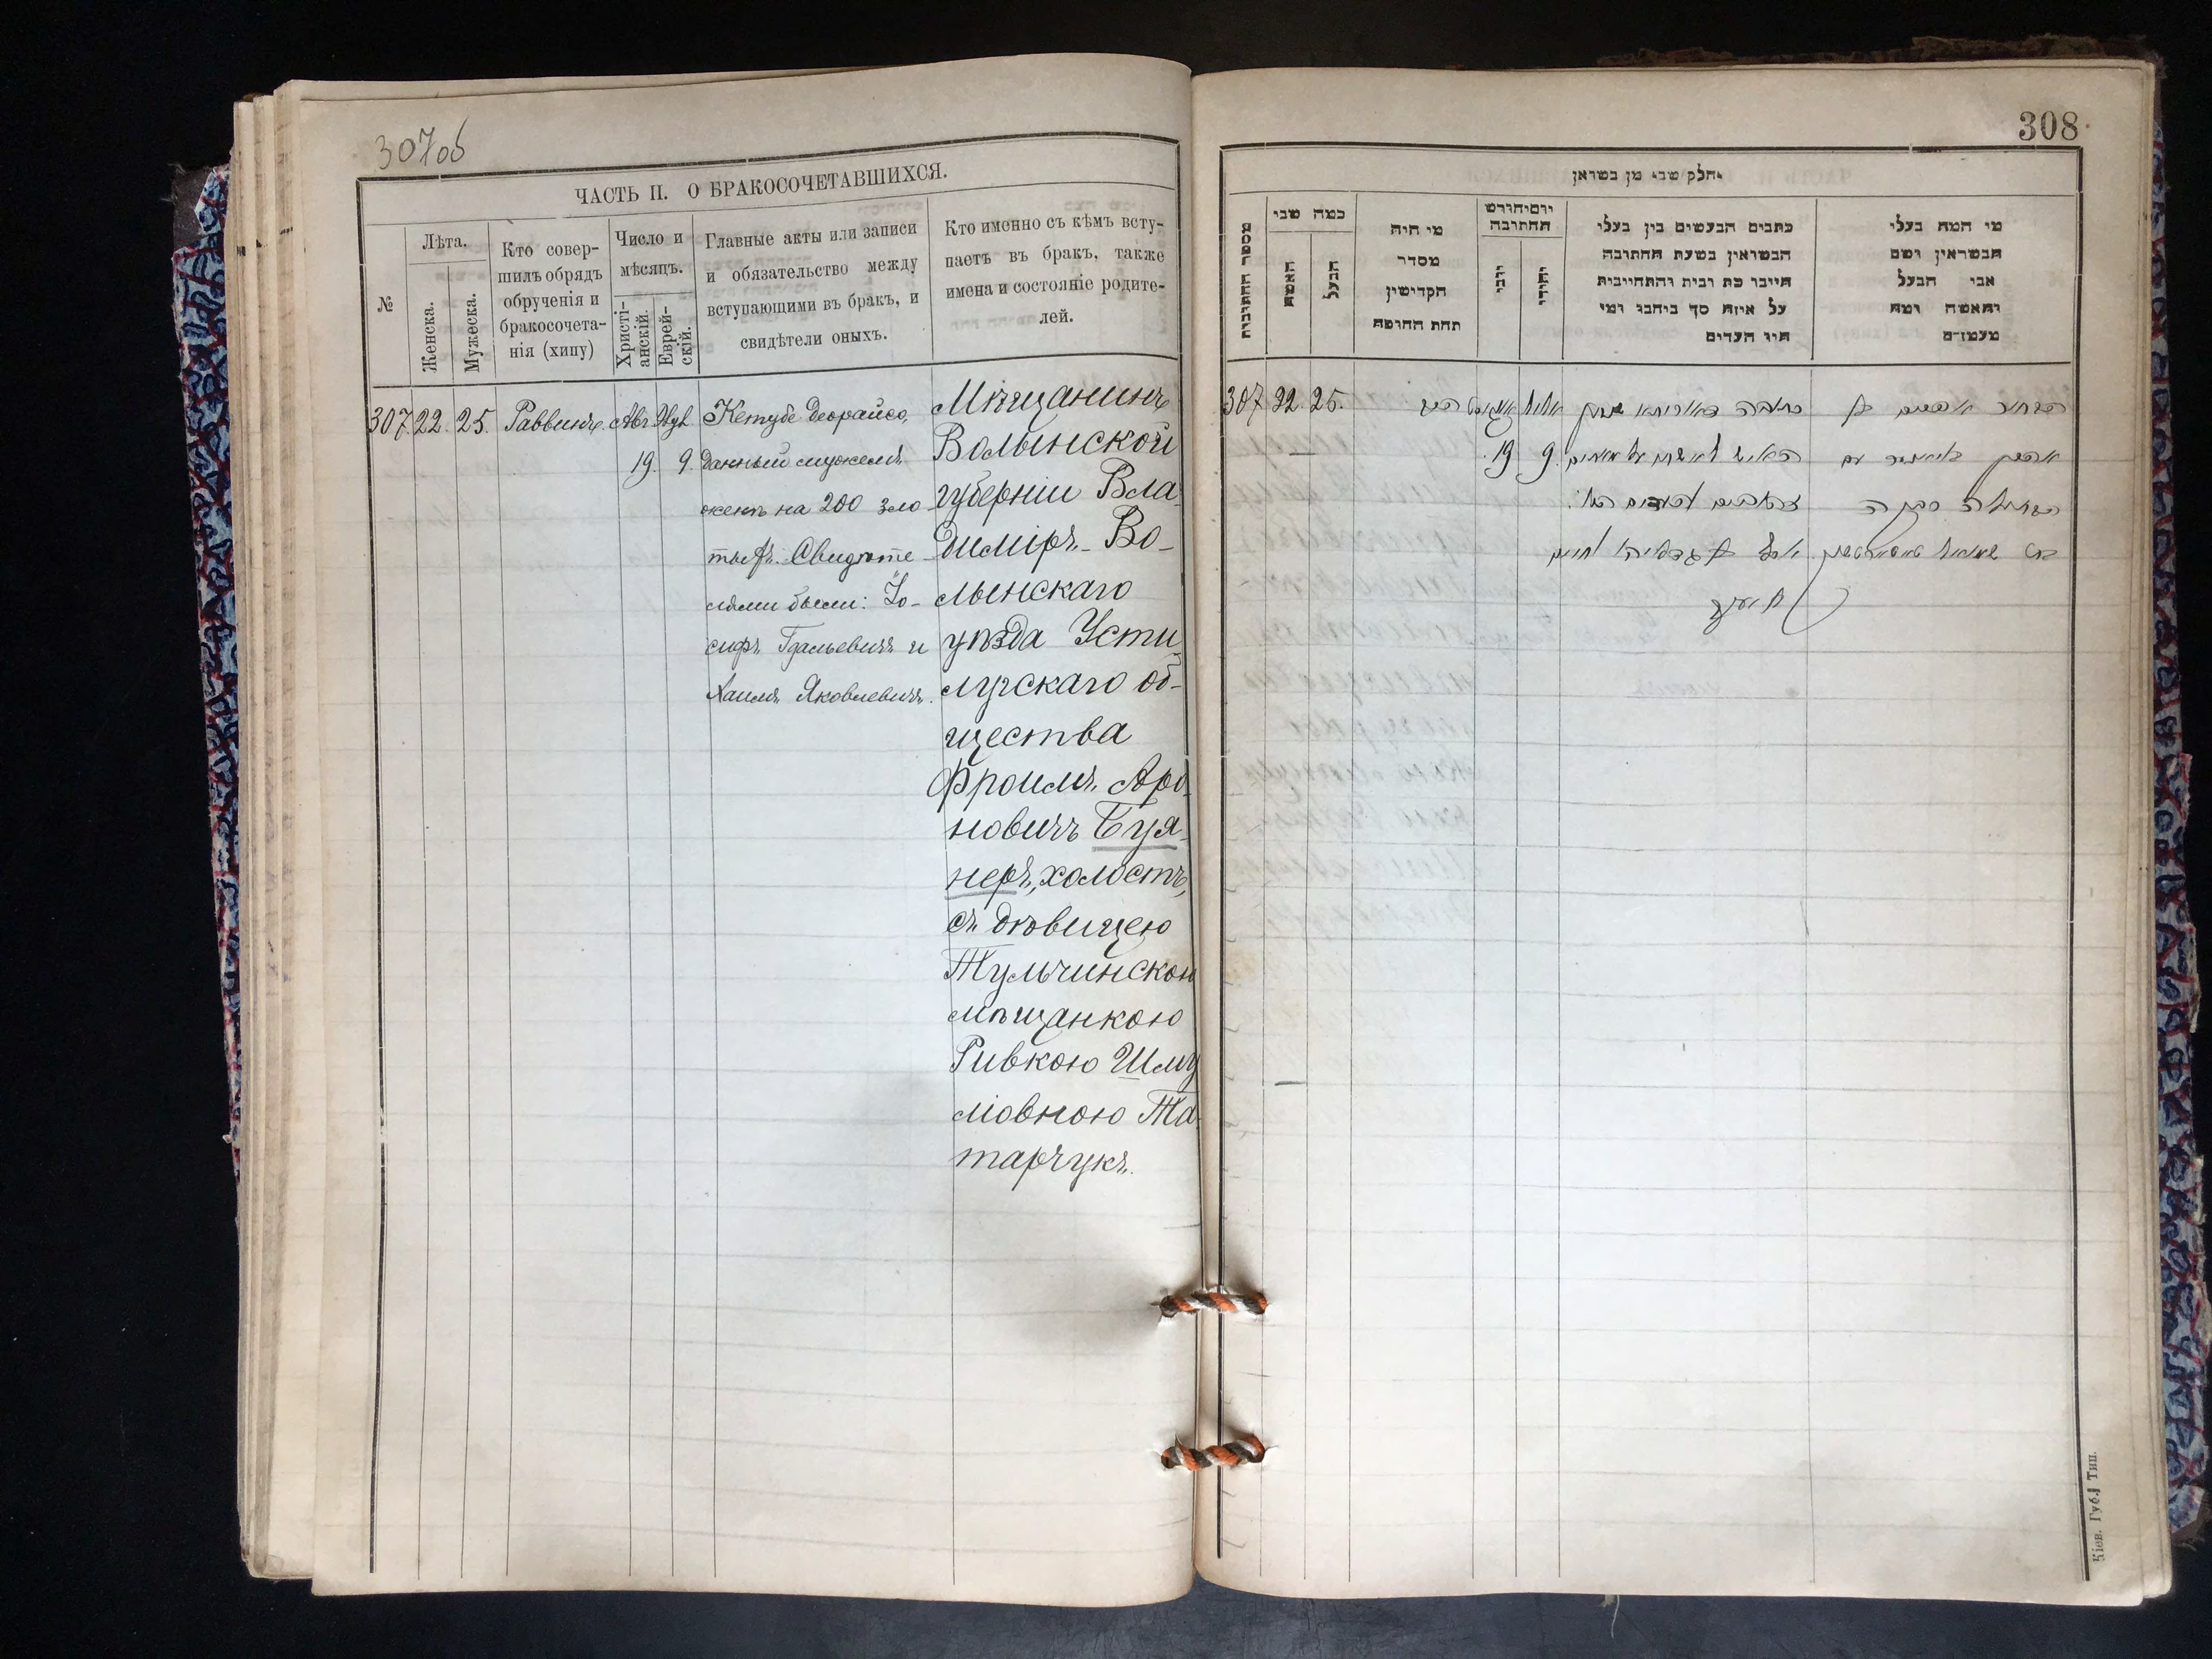 307об
ЧАСТЬ II. О БРАКОСОЧЕТАВШИХСЯ.
№
Лѣта.
Женска.
Мужеска.
Кто совер-
шилъ обрядъ
обрученія и
бракосочета-
нія (хипу)
Число и
мѣсяцъ.
Христі-
анскій.
Еврей-
скій.
Главные акты или записи
и обязательство между
вступающими въ бракъ, и
свидѣтели оныхъ.
Кто именно съ кѣмъ всту-
паетъ въ бракъ, также
имена и состояніе родите-
лей.
307. 22. 25. Раввинъ. Авг.
19. 9.
Кетубе Деорайсо,
данный мужемъ
женѣ на 200 зло-
тыхъ. Свидѣте-
лями были: Іо-
сифъ Гдальевичъ и
Хаимъ Яковлевичъ.
Мѣщанинъ
Волынской
губерніи Вла-
диміръ-Во-
лынскаго
уѣзда Усти-
лугскаго об-
щества
Фроимъ Аро-
новичъ Буя-
неръ, холостъ,
съ дѣвицею
Тульчинскою
мѣщанкою
Ривкою Шму-
ліовною Та-
тарчукъ.
308
חלק שני מן
כמה שני
האשה
הבעל
מי היה
מסדר
הקדישין
תחת החופה
יום וחודש
החתונה
יהודי
כתבים הנעשים בין בעלי
הנשואין בשעת החתונה
חייבו כת רבית והתחייבות
על איזה סך ביחבו ומי
היו העדים
מי המה בעלי
הנשואין ושם
אבי הבעל
והאשה ומה
מעמדם
307 22. 25.
אלול
19 9
הבחור אפרים בן
אהרן
הבתולה רבקה
בת שמואל
כתובה דאורייתא
יוסף בן גדליהו וחיים
בן יעקב
Кіев. Губ. Тип.